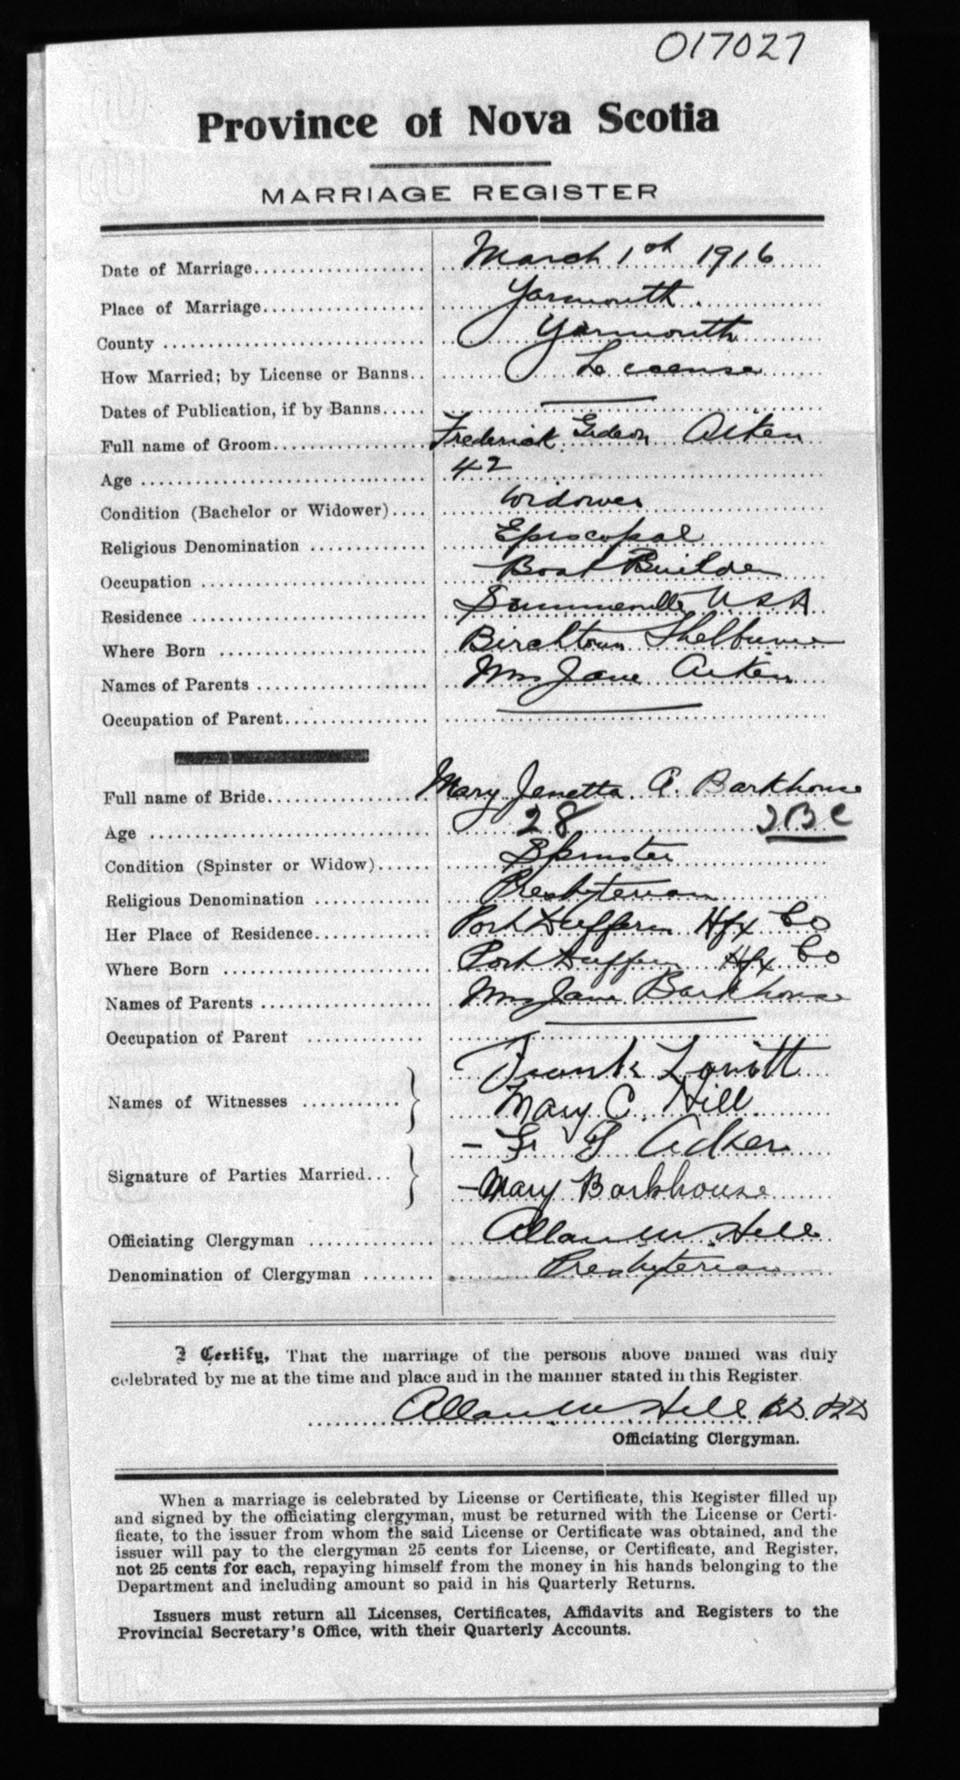 017027
Province of Nova Scotia
MARRIAGE REGISTER
Date of Marriage.................... March 1st 1916
Place of Marriage................... Yarmouth.
County .............................. Yarmouth
How Married; by License or Banns.. License
Dates of Publication, if by Banns.....
Full name of Groom.................. Frederick Gideon Aiken
Age .................................. 42
Condition (Bachelor or Widower).... Widower
Religious Denomination ............. Episcopal
Occupation .......................... Boat Builder
Residence ........................... USA
Where Born .......................... Birchtown Shelburne
Names of Parents ................... Mrs Jane Aiken
Occupation of Parent................
Full name of Bride.................. Mary Jenetta A. Barkhouse
Age .................................. 28
Condition (Spinster or Widow)...... Spinster
Religious Denomination ............. Presbyterian
Her Place of Residence.............. Port Dufferin Hfx Co
Where Born .......................... Port Dufferin Hfx Co
Names of Parents ................... Mrs Jane Barkhouse
Occupation of Parent ..............
Frank Lovitt
Names of Witnesses ........... Mary C. Hill
– F G Aiken
Signature of Parties Married... – Mary Barkhouse
Officiating Clergyman .............. Allan M. Hill
Denomination of Clergyman ........ Presbyterian
I Certify, That the marriage of the persons above named was duly
celebrated by me at the time and place and in the manner stated in this Register
Allan M. Hill
Officiating Clergyman.
When a marriage is celebrated by License or Certificate, this Register filled up
and signed by the officiating clergyman, must be returned with the License or Certi-
ficate, to the issuer from whom the said License or Certificate was obtained, and the
issuer will pay to the clergyman 25 cents for License, or Certificate, and Register,
not 25 cents for each, repaying himself from the money in his hands belonging to the
Department and including amount so paid in his Quarterly Returns.
Issuers must return all Licenses, Certificates, Affidavits and Registers to the
Provincial Secretary's Office, with their Quarterly Accounts.